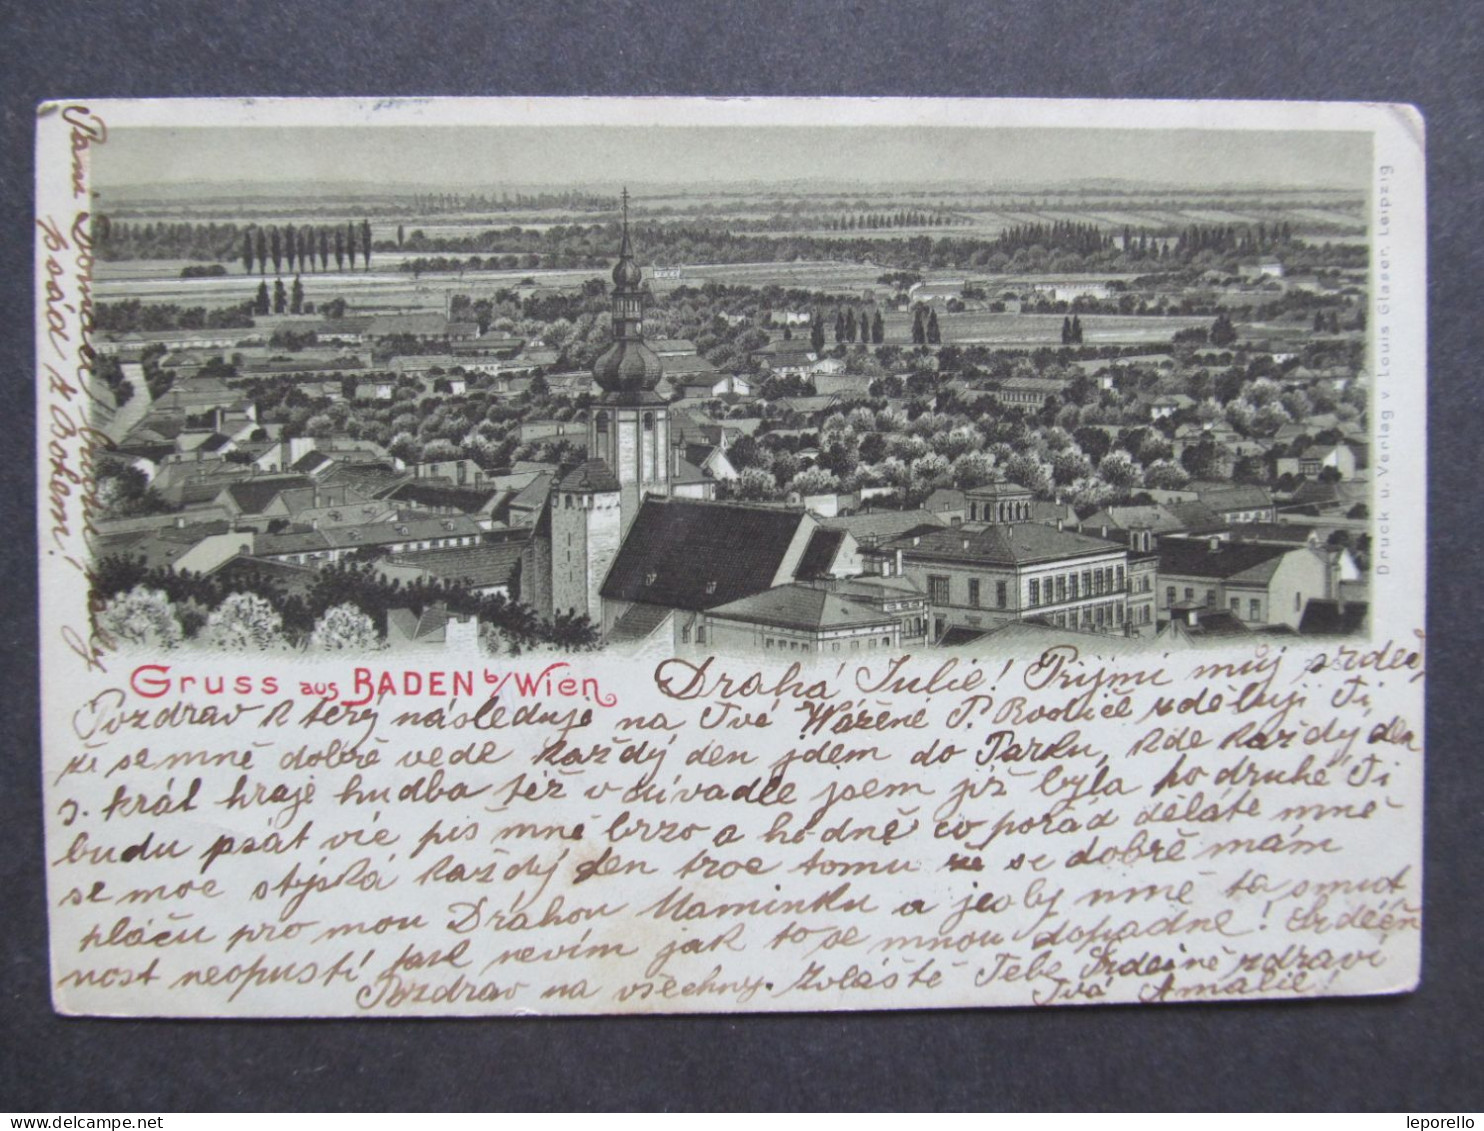 Gruss aus BADEN b/Wien
Drahá Julie! Přijmi můj srdeč
Pozdrav který následuje na Tvé Wážené P. Rodiče sděluji Ti
že se mně dobře vede každý den jdem do Parku, kde každý den
s. král hraje hudba též v divadle jsem již byla po druhé Ti
budu psát víc piš mně brzo a hodně co pořád děláte mně
se moc stýská každý den proč tomu že se dobře mám
pláču pro mou Dráhou Maminku a jenby mně ta smut
nost neopustí pak nevím jak to se mnou dopadne! Srdečn
Pozdrav na všechny. Zvláště Tebe Srdečně zdraví
Tvá Amalie!
psád z Bohem!
Druck u. Verlag v. Louis Glaser, Leipzig
leporello